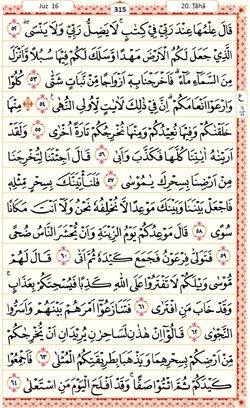 Juz 16
315
20. Ṭāhā
قَالَ عِلْمُهَا عِندَ رَبِّي فِي كِتَٰبٍ ۖ لَّا يَضِلُّ رَبِّي وَلَا يَنسَى ٥٢
الَّذِي جَعَلَ لَكُمُ الْأَرْضَ مَهْدًا وَسَلَكَ لَكُمْ فِيهَا سُبُلًا وَأَنزَلَ
مِنَ السَّمَاءِ مَاءً فَأَخْرَجْنَا بِهِ أَزْوَاجًا مِّن نَّبَاتٍ شَتَّىٰ ٥٣ كُلُوا
وَارْعَوْا أَنْعَامَكُمْ ۗ إِنَّ فِي ذَٰلِكَ لَآيَٰتٍ لِّأُولِي النُّهَىٰ ٥٤ مِنْهَا
خَلَقْنَٰكُمْ وَفِيهَا نُعِيدُكُمْ وَمِنْهَا نُخْرِجُكُمْ تَارَةً أُخْرَىٰ ٥٥ وَلَقَدْ
أَرَيْنَٰهُ آيَٰتِنَا كُلَّهَا فَكَذَّبَ وَأَبَىٰ ٥٦ قَالَ أَجِئْتَنَا لِتُخْرِجَنَا
مِنْ أَرْضِنَا بِسِحْرِكَ يَٰمُوسَىٰ ٥٧ فَلَنَأْتِيَنَّكَ بِسِحْرٍ مِّثْلِهِ
فَاجْعَلْ بَيْنَنَا وَبَيْنَكَ مَوْعِدًا لَّا نُخْلِفُهُ نَحْنُ وَلَا أَنتَ مَكَانًا
سُوًى ٥٨ قَالَ مَوْعِدُكُمْ يَوْمُ الزِّينَةِ وَأَن يُحْشَرَ النَّاسُ ضُحًى
٥٩ فَتَوَلَّىٰ فِرْعَوْنُ فَجَمَعَ كَيْدَهُ ثُمَّ أَتَىٰ ٦٠ قَالَ لَهُم
مُّوسَىٰ وَيْلَكُمْ لَا تَفْتَرُوا عَلَى اللَّهِ كَذِبًا فَيُسْحِتَكُم بِعَذَابٍ ۖ
وَقَدْ خَابَ مَنِ افْتَرَىٰ ٦١ فَتَنَٰزَعُوا أَمْرَهُم بَيْنَهُمْ وَأَسَرُّوا
النَّجْوَىٰ ٦٢ قَالُوا إِنْ هَٰذَٰنِ لَسَٰحِرَٰنِ يُرِيدَانِ أَن يُخْرِجَاكُم
مِّنْ أَرْضِكُم بِسِحْرِهِمَا وَيَذْهَبَا بِطَرِيقَتِكُمُ الْمُثْلَىٰ ٦٣ فَأَجْمِعُوا
كَيْدَكُمْ ثُمَّ ائْتُوا صَفًّا ۚ وَقَدْ أَفْلَحَ الْيَوْمَ مَنِ اسْتَعْلَىٰ ٦٤